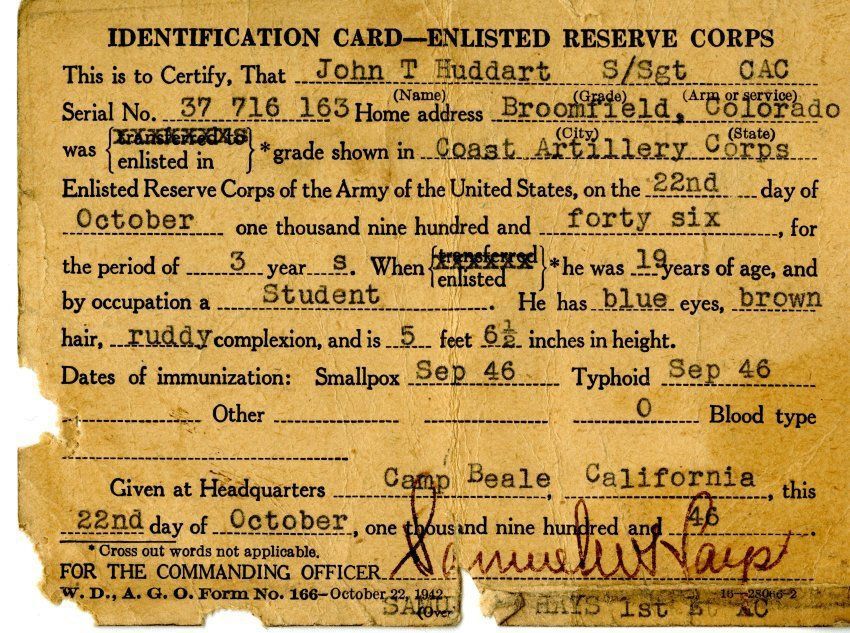 IDENTIFICATION CARD—ENLISTED RESERVE CORPS
This is to Certify, That John T Huddart S/Sgt CAC
(Name) (Grade) (Arm or service)
Serial No. 37 716 163 Home address Broomfield, Colorado
(City) (State)
was { transferred to
enlisted in } *grade shown in Coast Artillery Corps
Enlisted Reserve Corps of the Army of the United States, on the 22nd day of
October one thousand nine hundred and forty six, for
the period of 3 year s. When { transferred
enlisted } * he was 19 years of age, and
by occupation a Student. He has blue eyes, brown
hair, ruddy complexion, and is 5 feet 6½ inches in height.
Dates of immunization: Smallpox Sep 46 Typhoid Sep 46
Other O Blood type
Given at Headquarters Camp Beale, California, this
22nd day of October, one thousand nine hundred and 46.
* Cross out words not applicable.
FOR THE COMMANDING OFFICER
W. D., A. G. O. Form No. 166—October 22, 1942 16—28066-2
(Over HAYS 1st AC